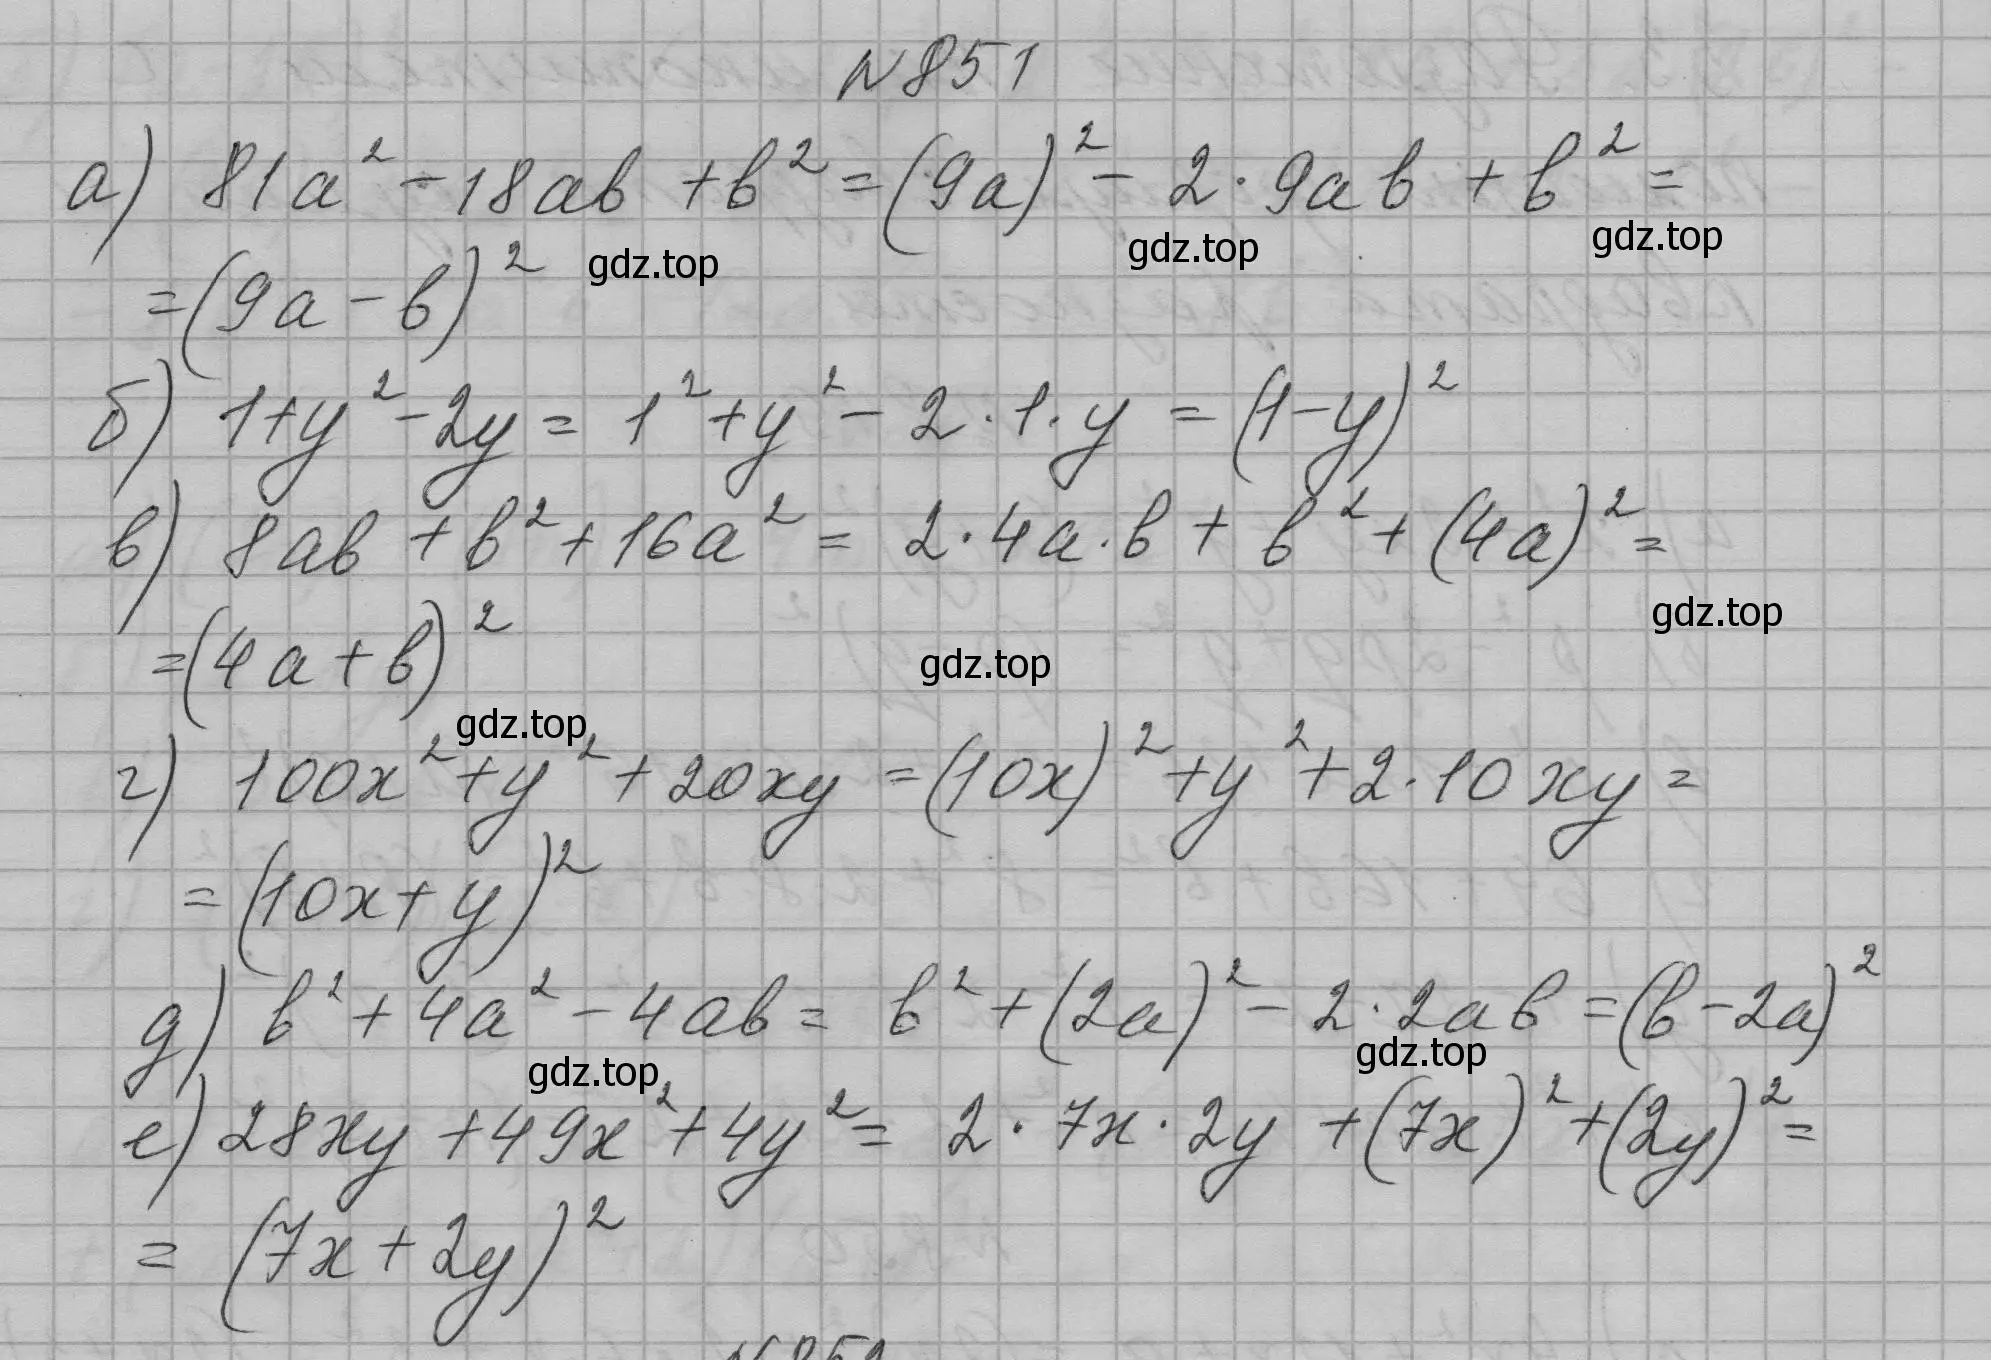 №851
а) 81a² - 18ab + b² = (9a)² - 2·9ab + b² =
gdz.top gdz.top gdz.top
= (9a - b)²
б) 1 + y² - 2y = 1² + y² - 2·1·y = (1 - y)²
в) 8ab + b² + 16a² = 2·4a·b + b² + (4a)² =
gdz.top
= (4a + b)²
gdz.top
gdz.top
г) 100x² + y² + 20xy = (10x)² + y² + 2·10xy =
= (10x + y)²
д) b² + 4a² - 4ab = b² + (2a)² - 2·2ab = (b - 2a)²
gdz.top gdz.top
е) 28xy + 49x² + 4y² = 2·7x·2y + (7x)² + (2y)² =
= (7x + 2y)²